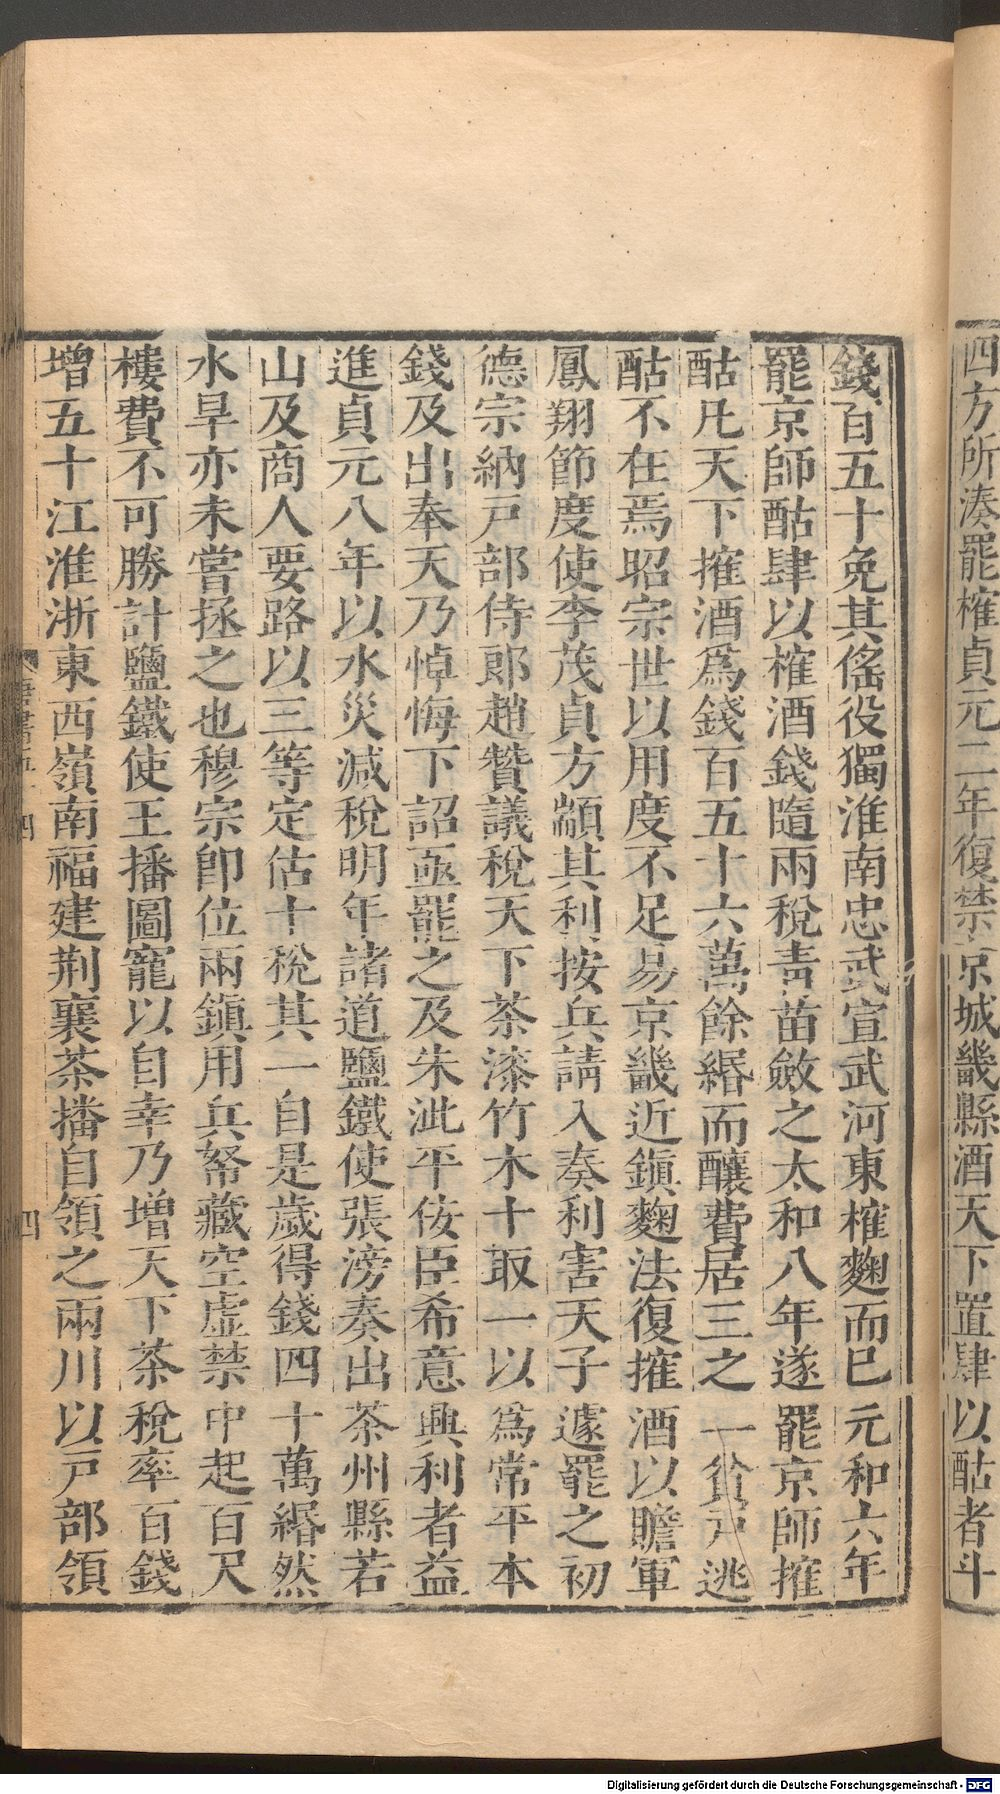 四方所湊罷榷貞元二年復禁京城畿縣酒天下置肆以酤者斗
錢百五十免其傜役獨淮南忠武宣武河東榷麴而已元和六年
罷京師酤肆以榷酒錢隨兩稅青苗斂之太和八年遂罷京師搉
酤凡天下搉酒爲錢百五十六萬餘緡而釀費居三之一貧戸逃
酤不在焉昭宗世以用度不足易京畿近鎭麴法復搉酒以贍軍
鳳翔節度使李茂貞方顓其利按兵請入奏利害天子遽罷之初
德宗納戸部侍郎趙贊議稅天下茶漆竹木十取一以爲常平本
錢及出奉天乃悼悔下詔亟罷之及朱泚平佞臣希意興利者益
進貞元八年以水災減稅明年諸道鹽鐵使張滂奏出茶州縣若
山及商人要路以三等定估十稅其一自是歲得錢四十萬緡然
水旱亦未嘗拯之也穆宗卽位兩鎭用兵帑藏空虛禁中起百尺
樓費不可勝計鹽鐵使王播圖寵以自幸乃增天下茶稅率百錢
增五十江淮浙東西嶺南福建荆襄茶播自領之兩川以戸部領
四
Digitalisierung gefördert durch die Deutsche Forschungsgemeinschaft - DFG